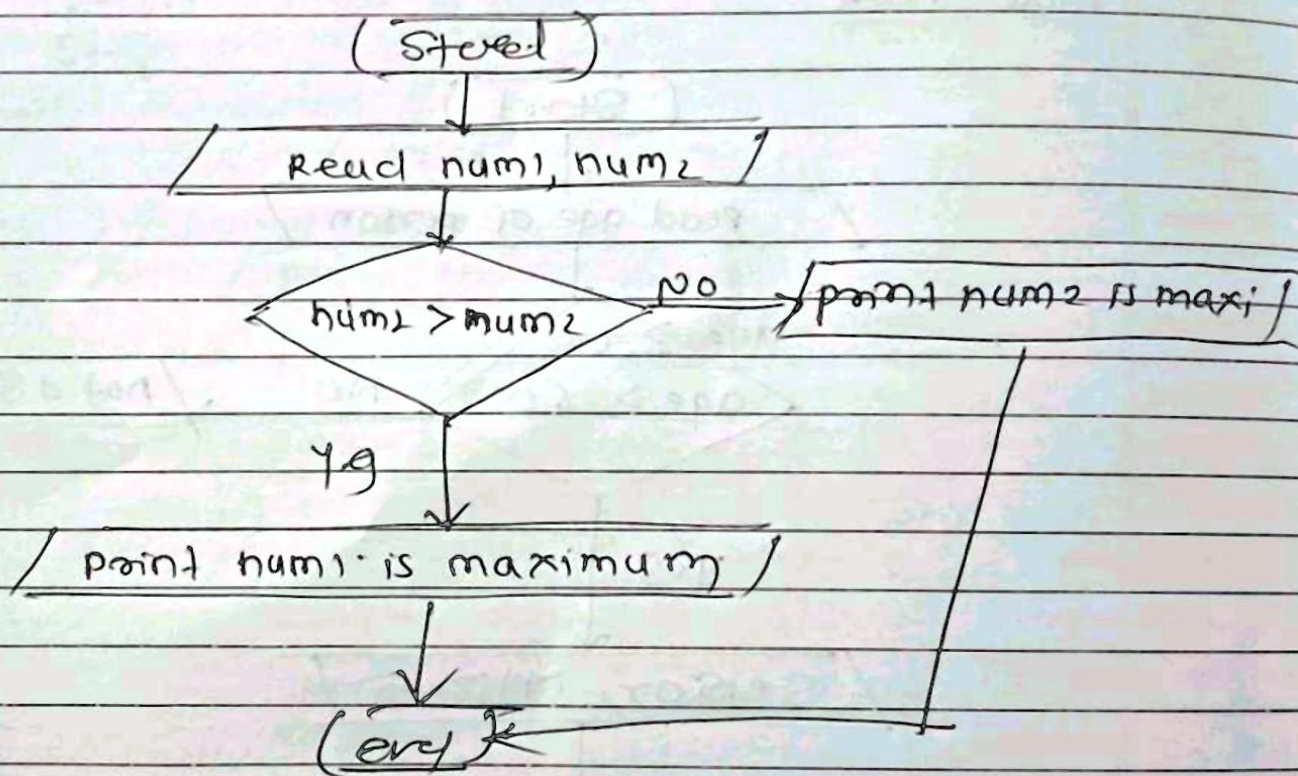 Start
Read num1, num2
num1 > num2
No
print num2 is maxi
Yes
print num1 is maximum
end